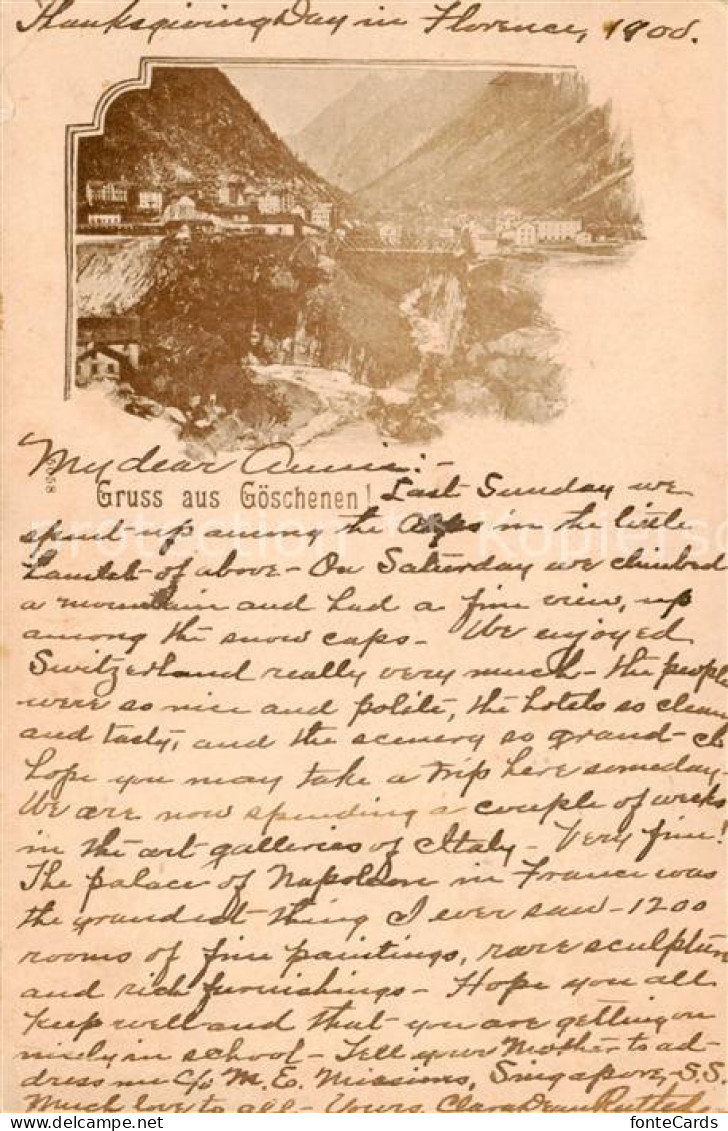 Thanksgiving Day in Florence, 1900.
My dear Annie:-
5958
Gruss aus Göschenen!
Last Sunday we
spent up among the Alps in the little
hamlet of above - On Saturday we climbed
a mountain and had a fine view, up
among the snow caps - We enjoyed
Switzerland really very much - the people
were so nice and polite, the hotels so clean
and tasty, and the scenery so grand -
hope you may take a trip here someday.
We are now spending a couple of weeks
in the art galleries of Italy - Very fine!
The palace of Napoleon in France was
the grandest thing I ever saw - 1200
rooms of fine paintings, rare sculpture
and rich furnishings - Hope you all
keep well and that you are getting on
nicely in school - Tell your Mother to ad-
dress me c/o M.E. Missions, Singapore, S.S.
Much love to all - Yours, Clara
fonteCards